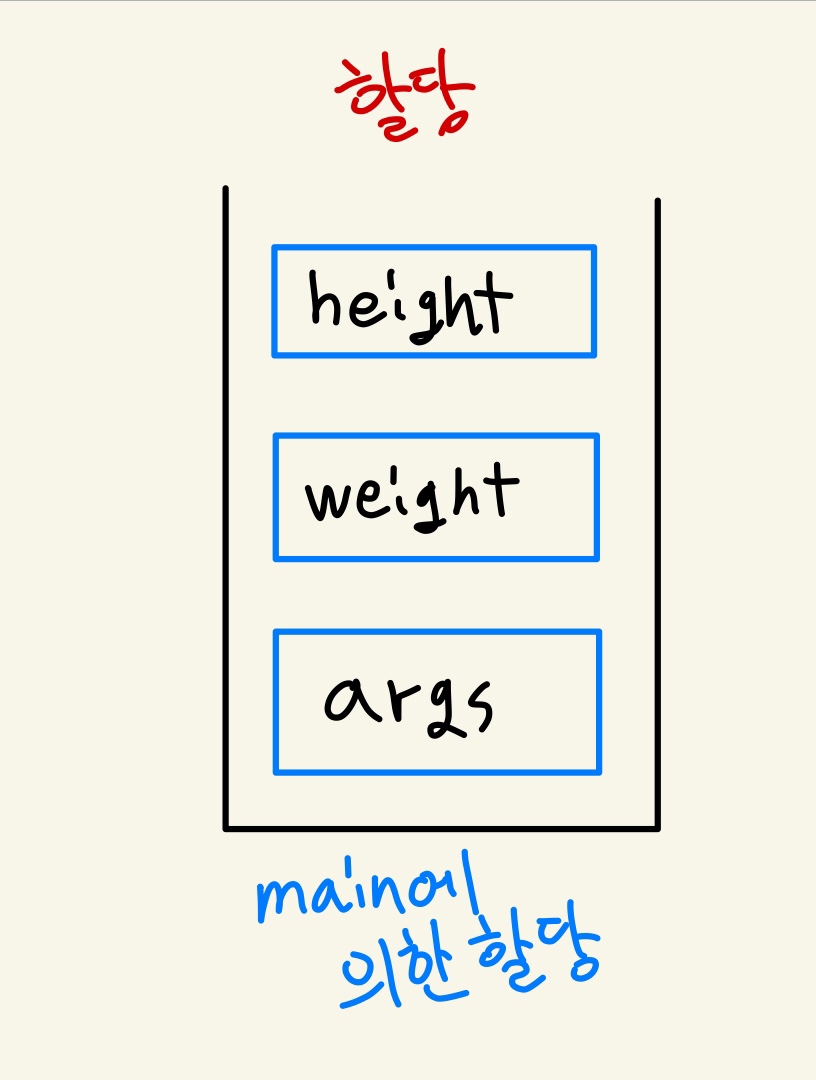 할당
height
weight
args
main에
의한 할당